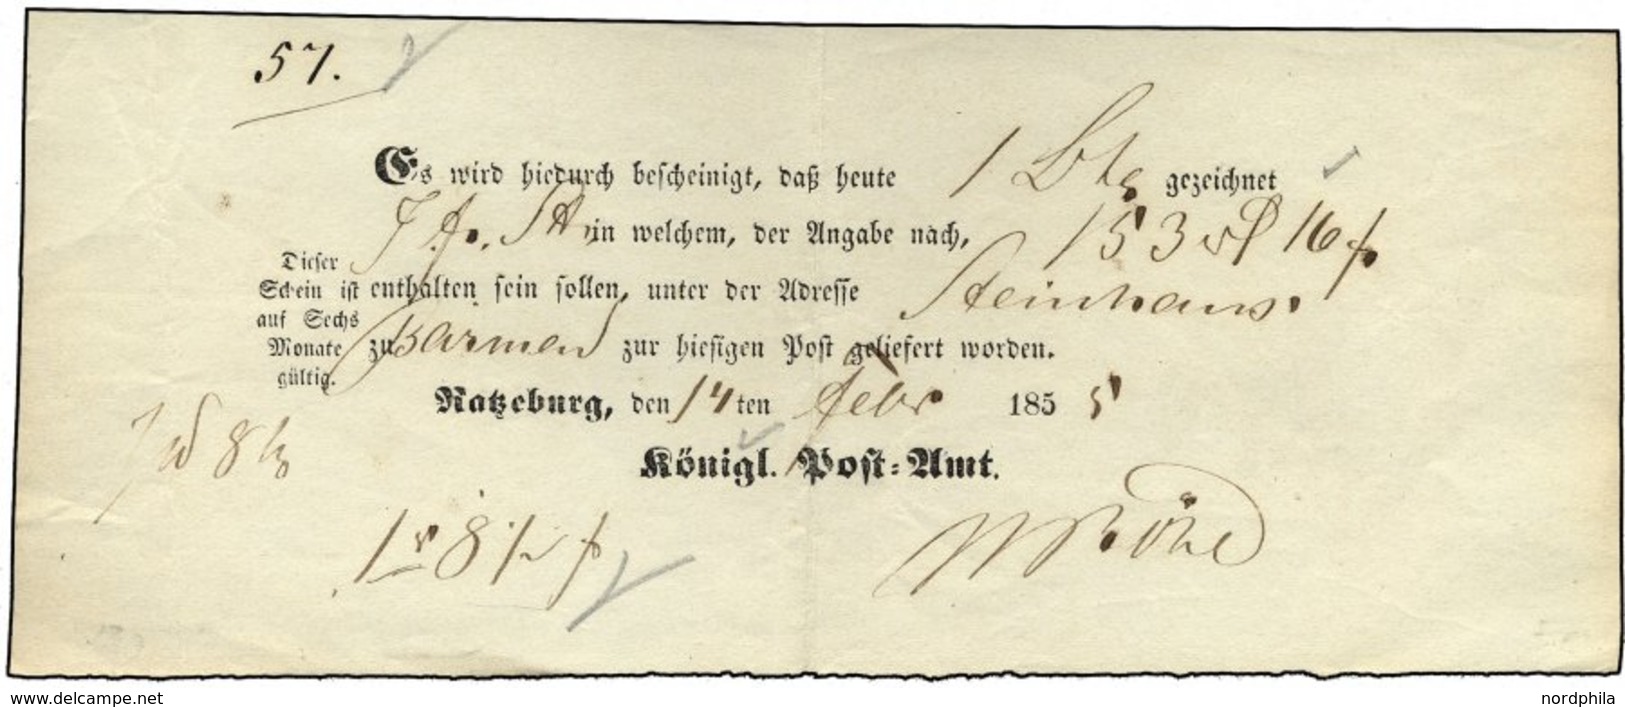 57.
Es wird hiedurch bescheinigt, daß heute 1 gezeichnet
in welchem, der Angabe nach, 153 16
Dieser Schein ist auf Sechs Monate gültig.
enthalten sein sollen, unter der Adresse Steinhaus
zu Barmen zur hiesigen Post geliefert worden.
Ratzeburg, den 14ten Febr 1855
Königl. Post-Amt.
www.delcampe.net
nordphila